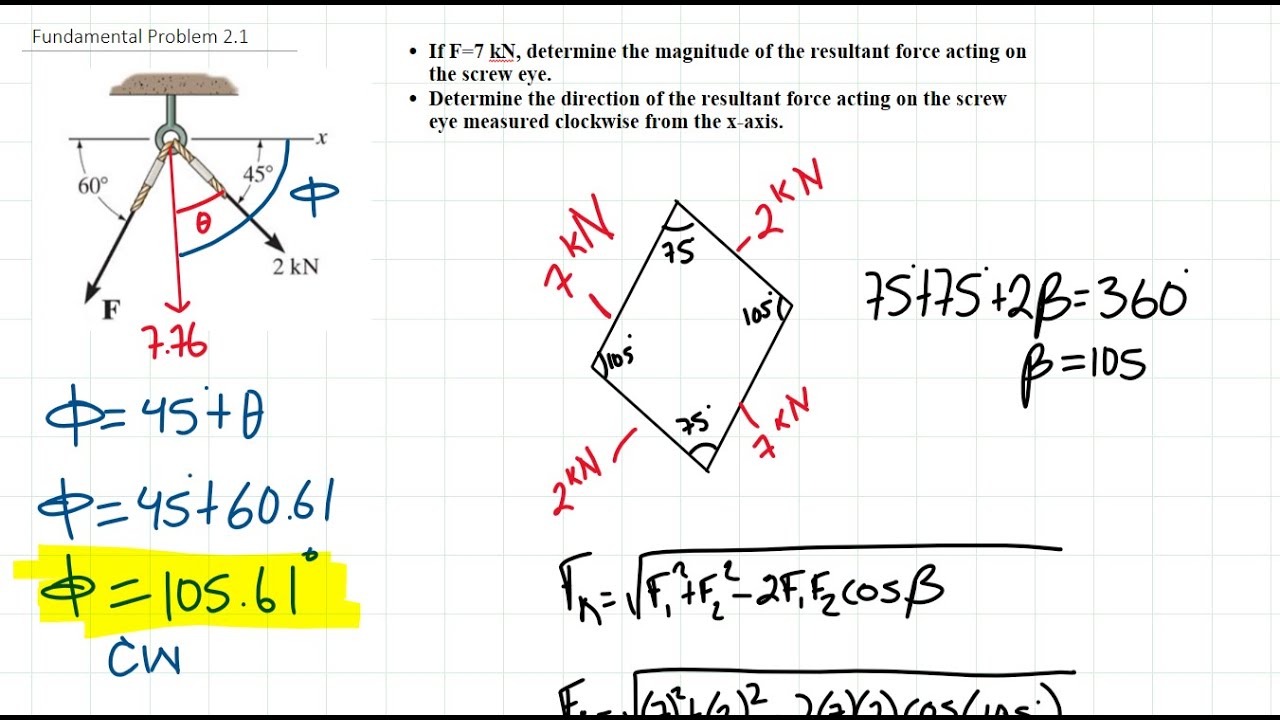 Fundamental Problem 2.1
• If F=7 kN, determine the magnitude of the resultant force acting on
the screw eye.
• Determine the direction of the resultant force acting on the screw
eye measured clockwise from the x-axis.
x
60°
45°
ϕ
θ
2 kN
F
7.76
7 kN
2 kN
75°
105°
105°
75°
2 kN
7 kN
75°+75°+2β=360°
β=105
ϕ=45°+θ
ϕ=45°+60.61
ϕ=105.61°
CW
F_R=√F₁²+F₂²-2F₁F₂cosβ
√(7)²+(2)²-2(7)(2)cos(105°)